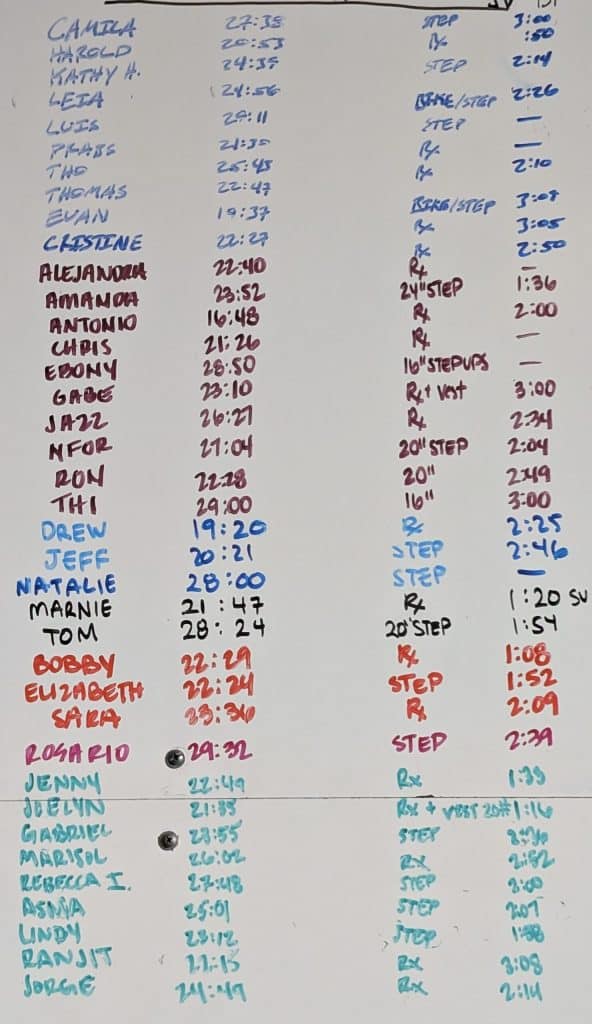 CAMILA 27:38 STEP 3:00
HAROLD 20:53 Rx :50
KATHY H. 24:39 STEP 2:14
LEIA 24:56 BIKE/STEP 2:26
LUIS 29:11 STEP —
PRABS 21:30 Rx —
THO 25:45 Rx 2:10
THOMAS 22:47
EVAN 19:37 BIKE/STEP 3:09
Rx 3:05
CRISTINE 22:27 Rx 2:50
ALEJANDRA 22:40 Rx —
AMANDA 23:52 24" STEP 1:36
ANTONIO 16:48 Rx 2:00
CHRIS 21:26 Rx —
EBONY 28:50 16" STEPUPS —
GABE 23:10 Rx + Vest 3:00
JAZZ 26:27 Rx 2:34
NFOR 27:04 20" STEP 2:04
RON 22:28 20" 2:49
THI 29:00 16" 3:00
DREW 19:20 Rx 2:25
JEFF 20:21 STEP 2:46
NATALIE 28:00 STEP —
MARNIE 21:47 Rx 1:20 SU
TOM 28:24 20" STEP 1:54
BOBBY 22:29 Rx 1:08
ELIZABETH 22:24 STEP 1:52
SARA 23:36 Rx 2:09
ROSARIO 29:32 STEP 2:39
JENNY 22:49 Rx 1:39
JOELYN 21:35 Rx + VEST 20# 1:16
GABRIEL 23:55 STEP
MARISOL 26:02 Rx 2:52
REBECCA I. 27:48 STEP 2:00
ASMA 25:01 STEP 2:07
LINDY 23:12 STEP 1:58
RANJIT 22:15 Rx 3:08
JORGE 24:49 Rx 2:14